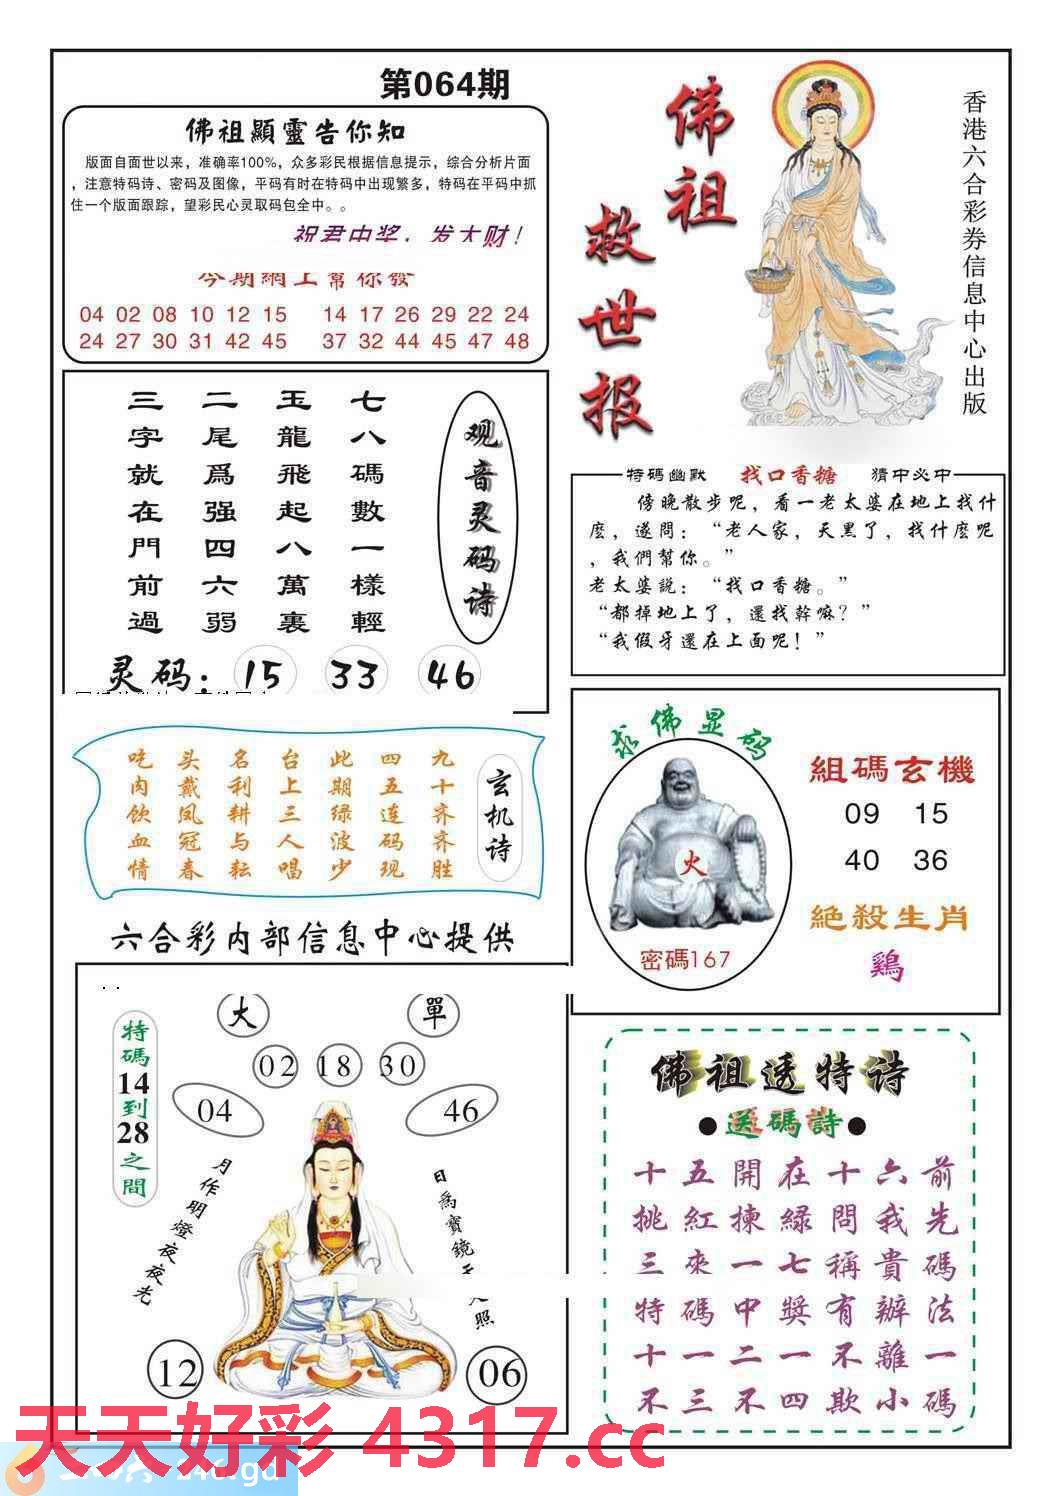 第064期
佛祖顯靈告你知
版面自面世以来，准确率100%，众多彩民根据信息提示，综合分析片面
，注意特码诗、密码及图像，平码有时在特码中出现繁多，特码在平码中抓
住一个版面跟踪，望彩民心灵取码包全中。。
祝君中奖，发大财！
今期網上幫你發
04 02 08 10 12 15 14 17 26 29 22 24
24 27 30 31 42 45 37 32 44 45 47 48
佛祖
救世报
香港六合彩券信息中心出版
观音灵码诗
七八碼數一樣輕
玉龍飛起八萬裏
二尾爲强四六弱
三字就在門前過
灵码：15 33 46
特碼幽默 找口香糖 猜中必中
傍晚散步呢，看一老太婆在地上找什
麽，遂問：“老人家，天黑了，找什麽呢
，我們幫你。”
老太婆説：“找口香糖。”
“都掉地上了，還找幹嘛？”
“我假牙還在上面呢！”
玄机诗
九十齐齐胜
四五连码现
此期绿波少
台上三人唱
名利耕与耘
头戴凤冠春
吃肉饮血情
求佛显码
火
密碼167
組碼玄機
09 15
40 36
絕殺生肖
鷄
六合彩内部信息中心提供
特碼14到28之間
大 單
02 18 30
04 46
月作明燈夜夜光
日爲寶鏡
照
12 06
佛祖透特诗
●送碼詩●
十五開在十六前
挑紅揀緑問我先
三來一七稱貴碼
特碼中獎有辦法
十一二一不離一
不三不四欺小碼
天天好彩 4317.cc
246.gd